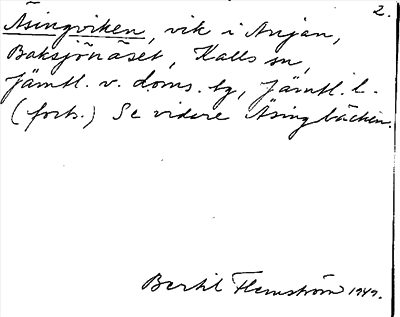 2.
Äsingviken, vik i Anjan,
Baksjönäset, Kalls sn,
Jämtl. v. doms. tg, Jämtl. l.
(forts.) Se vidare Äsingbäcken.
Bertil Flemström 1949.